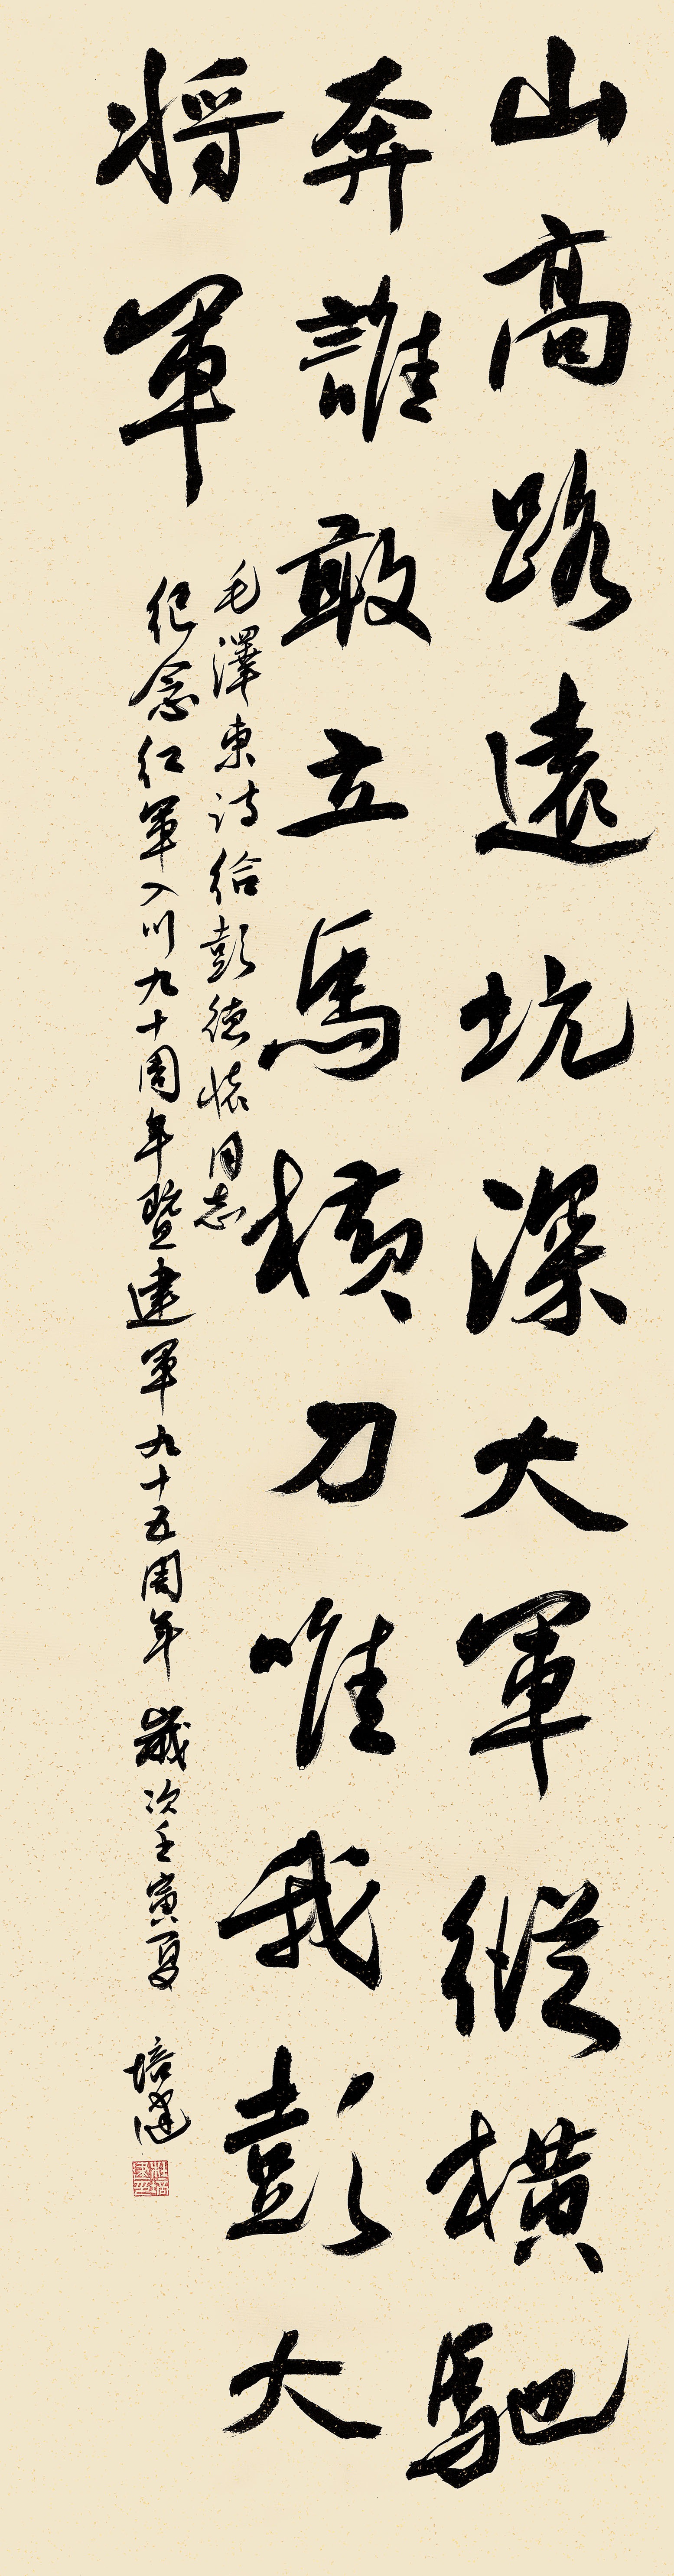 山高路遠坑深大軍縱横馳
奔誰敢立馬横刀唯我彭大
将軍
毛澤東詩给彭德懷同志
纪念红軍入川九十周年暨建軍九十五周年 歲次壬寅夏 培建
杜培建印